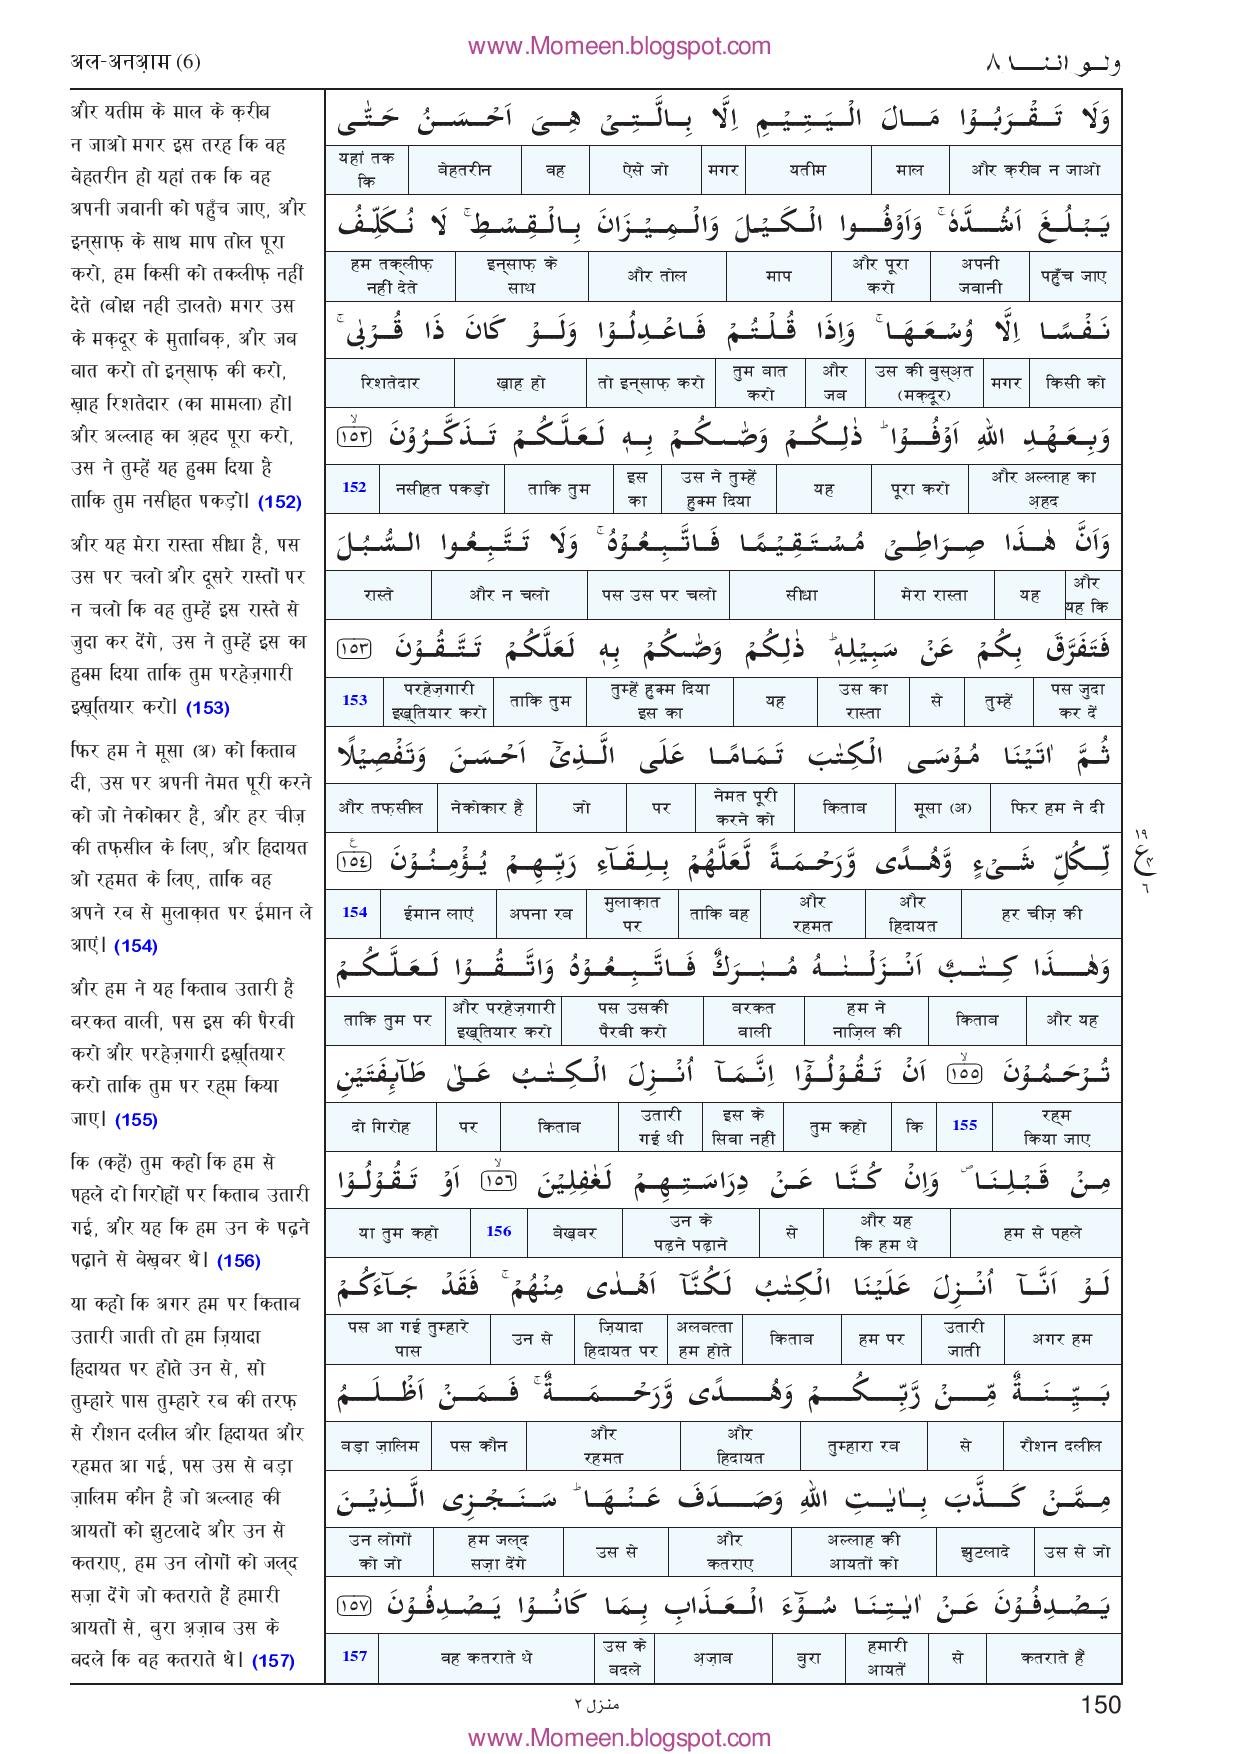 www.Momeen.blogspot.com
अल-अनआ़म (6)
ولو اننا ٨
और यतीम के माल के क़रीब
न जाओ मगर इस तरह कि वह
बेहतरीन हो यहां तक कि वह
अपनी जवानी को पहुँच जाए, और
इन्साफ़ के साथ माप तोल पूरा
करो, हम किसी को तकलीफ़ नहीं
देते (बोझ नहीं डालते) मगर उस
के मक़्दूर के मुताबिक़, और जब
बात करो तो इन्साफ़ की करो,
ख़्वाह रिशतेदार (का मामला) हो।
और अल्लाह का अ़हद पूरा करो,
उस ने तुम्हें यह हुक्म दिया है
ताकि तुम नसीहत पकड़ो। (152)
और यह मेरा रास्ता सीधा है, पस
उस पर चलो और दूसरे रास्तों पर
न चलो कि वह तुम्हें इस रास्ते से
जुदा कर देंगे, उस ने तुम्हें इस का
हुक्म दिया ताकि तुम परहेज़गारी
इख़्तियार करो। (153)
फिर हम ने मूसा (अ) को किताब
दी, उस पर अपनी नेमत पूरी करने
को जो नेकोकार है, और हर चीज़
की तफ़सील के लिए, और हिदायत
ओ रहमत के लिए, ताकि वह
अपने रब से मुलाक़ात पर ईमान ले
आएं। (154)
और हम ने यह किताब उतारी है
बरकत वाली, पस इस की पैरवी
करो और परहेज़गारी इख़्तियार
करो ताकि तुम पर रह्म किया
जाए। (155)
कि (कहें) तुम कहो कि हम से
पहले दो गिरोहों पर किताब उतारी
गई, और यह कि हम उन के पढ़ने
पढ़ाने से बेख़बर थे। (156)
या कहो कि अगर हम पर किताब
उतारी जाती तो हम ज़ियादा
हिदायत पर होते उन से, सो
तुम्हारे पास तुम्हारे रब की तरफ़
से रौशन दलील और हिदायत और
रहमत आ गई, पस उस से बड़ा
ज़ालिम कौन है जो अल्लाह की
आयतों को झुटलादे और उन से
कतराए, हम उन लोगों को जल्द
सज़ा देंगे जो कतराते हैं हमारी
आयतों से, बुरा अ़ज़ाब उस के
बदले कि वह कतराते थे। (157)
وَلَا تَقْرَبُوْا مَالَ الْيَتِيْمِ اِلَّا بِالَّتِيْ هِيَ اَحْسَنُ حَتّٰى
यहां तक कि बेहतरीन वह ऐसे जो मगर यतीम माल और क़रीब न जाओ
يَبْلُغَ اَشُدَّهٗ ۚ وَاَوْفُوا الْكَيْلَ وَالْمِيْزَانَ بِالْقِسْطِ ۚ لَا نُكَلِّفُ
हम तक्लीफ़ नहीं देते इन्साफ़ के साथ और तोल माप और पूरा करो अपनी जवानी पहुँच जाए
نَفْسًا اِلَّا وُسْعَهَا ۚ وَاِذَا قُلْتُمْ فَاعْدِلُوْا وَلَوْ كَانَ ذَا قُرْبٰى ۚ
रिशतेदार ख़ाह हो तो इन्साफ़ करो तुम बात करो और जब उस की वुस्अ़त (मक़्दूर) मगर किसी को
وَبِعَهْدِ اللهِ اَوْفُوْا ۭ ذٰلِكُمْ وَصّٰىكُمْ بِهٖ لَعَلَّكُمْ تَذَكَّرُوْنَ ١٥٢ۙ
152 नसीहत पकड़ो ताकि तुम इस का उस ने तुम्हें हुक्म दिया यह पूरा करो और अल्लाह का अ़हद
وَاَنَّ هٰذَا صِرَاطِيْ مُسْتَقِيْمًا فَاتَّبِعُوْهُ ۚ وَلَا تَتَّبِعُوا السُّبُلَ
रास्ते और न चलो पस उस पर चलो सीधा मेरा रास्ता यह और यह कि
فَتَفَرَّقَ بِكُمْ عَنْ سَبِيْلِهٖ ۭ ذٰلِكُمْ وَصّٰىكُمْ بِهٖ لَعَلَّكُمْ تَتَّقُوْنَ ١٥٣
153 परहेज़गारी इख़्तियार करो ताकि तुम तुम्हें हुक्म दिया इस का यह उस का रास्ता से तुम्हें पस जुदा कर दें
ثُمَّ اٰتَيْنَا مُوْسَى الْكِتٰبَ تَمَامًا عَلَى الَّذِيْٓ اَحْسَنَ وَتَفْصِيْلًا
और तफ़सील नेकोकार है जो पर नेमत पूरी करने को किताब मूसा (अ) फिर हम ने दी
لِّكُلِّ شَيْءٍ وَّهُدًى وَّرَحْمَةً لَّعَلَّهُمْ بِلِقَآءِ رَبِّهِمْ يُؤْمِنُوْنَ ١٥٤ۧ
١٩
ع ٤
٦
154 ईमान लाएं अपना रब मुलाक़ात पर ताकि वह और रहमत और हिदायत हर चीज़ की
وَهٰذَا كِتٰبٌ اَنْزَلْنٰهُ مُبٰرَكٌ فَاتَّبِعُوْهُ وَاتَّقُوْا لَعَلَّكُمْ
ताकि तुम पर और परहेज़गारी इख़्तियार करो पस उसकी पैरवी करो बरकत वाली हम ने नाज़िल की किताब और यह
تُرْحَمُوْنَ ١٥٥ۙ اَنْ تَقُوْلُوْٓا اِنَّمَآ اُنْزِلَ الْكِتٰبُ عَلٰى طَآىِٕفَتَيْنِ
दो गिरोह पर किताब उतारी गई थी इस के सिवा नहीं तुम कहो कि 155 रह्म किया जाए
مِنْ قَبْلِنَا ۠ وَاِنْ كُنَّا عَنْ دِرَاسَتِهِمْ لَغٰفِلِيْنَ ١٥٦ۙ اَوْ تَقُوْلُوْا
या तुम कहो 156 बेख़बर उन के पढ़ने पढ़ाने से और यह कि हम थे हम से पहले
لَوْ اَنَّآ اُنْزِلَ عَلَيْنَا الْكِتٰبُ لَكُنَّآ اَهْدٰى مِنْهُمْ ۚ فَقَدْ جَآءَكُمْ
पस आ गई तुम्हारे पास उन से ज़ियादा हिदायत पर अलबत्ता हम होते किताब हम पर उतारी जाती अगर हम
بَيِّنَةٌ مِّنْ رَّبِّكُمْ وَهُدًى وَّرَحْمَةٌ ۚ فَمَنْ اَظْلَمُ
बड़ा ज़ालिम पस कौन और रहमत और हिदायत तुम्हारा रब से रौशन दलील
مِمَّنْ كَذَّبَ بِاٰيٰتِ اللهِ وَصَدَفَ عَنْهَا ۭ سَنَجْزِى الَّذِيْنَ
उन लोगों को जो हम जल्द सज़ा देंगे उस से और कतराए अल्लाह की आयतों को झुटलादे उस से जो
يَصْدِفُوْنَ عَنْ اٰيٰتِنَا سُوْٓءَ الْعَذَابِ بِمَا كَانُوْا يَصْدِفُوْنَ ١٥٧
157 वह कतराते थे उस के बदले अ़ज़ाब बुरा हमारी आयतें से कतराते हैं
منزل ٢
150
www.Momeen.blogspot.com